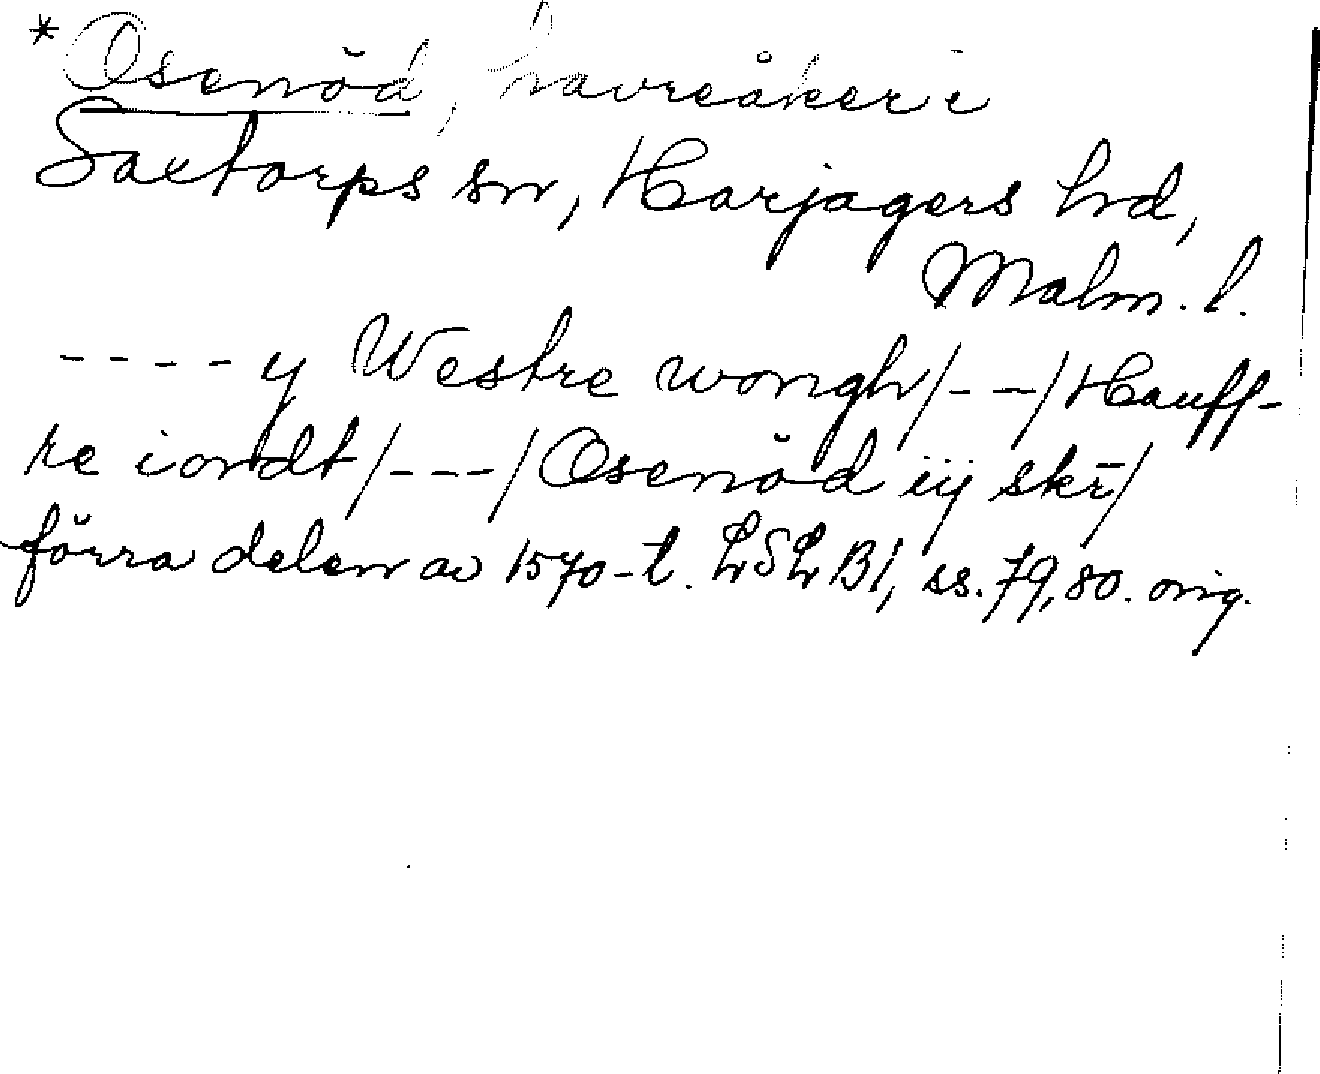 *Osenöd, havreåker i
Saxtorps sn, Harjagers hd,
Malm. l.
---- y Westre wongh/--/Hauff-
re iordt/---/Osenöd iij skr̄/
förra delen av 1570-t. LSL BI, ss. 79, 80. orig.